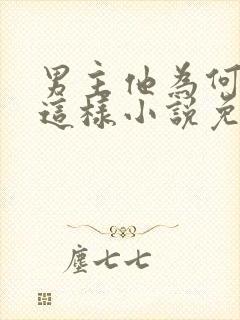 男主他為何
這樣小說免
塵七七